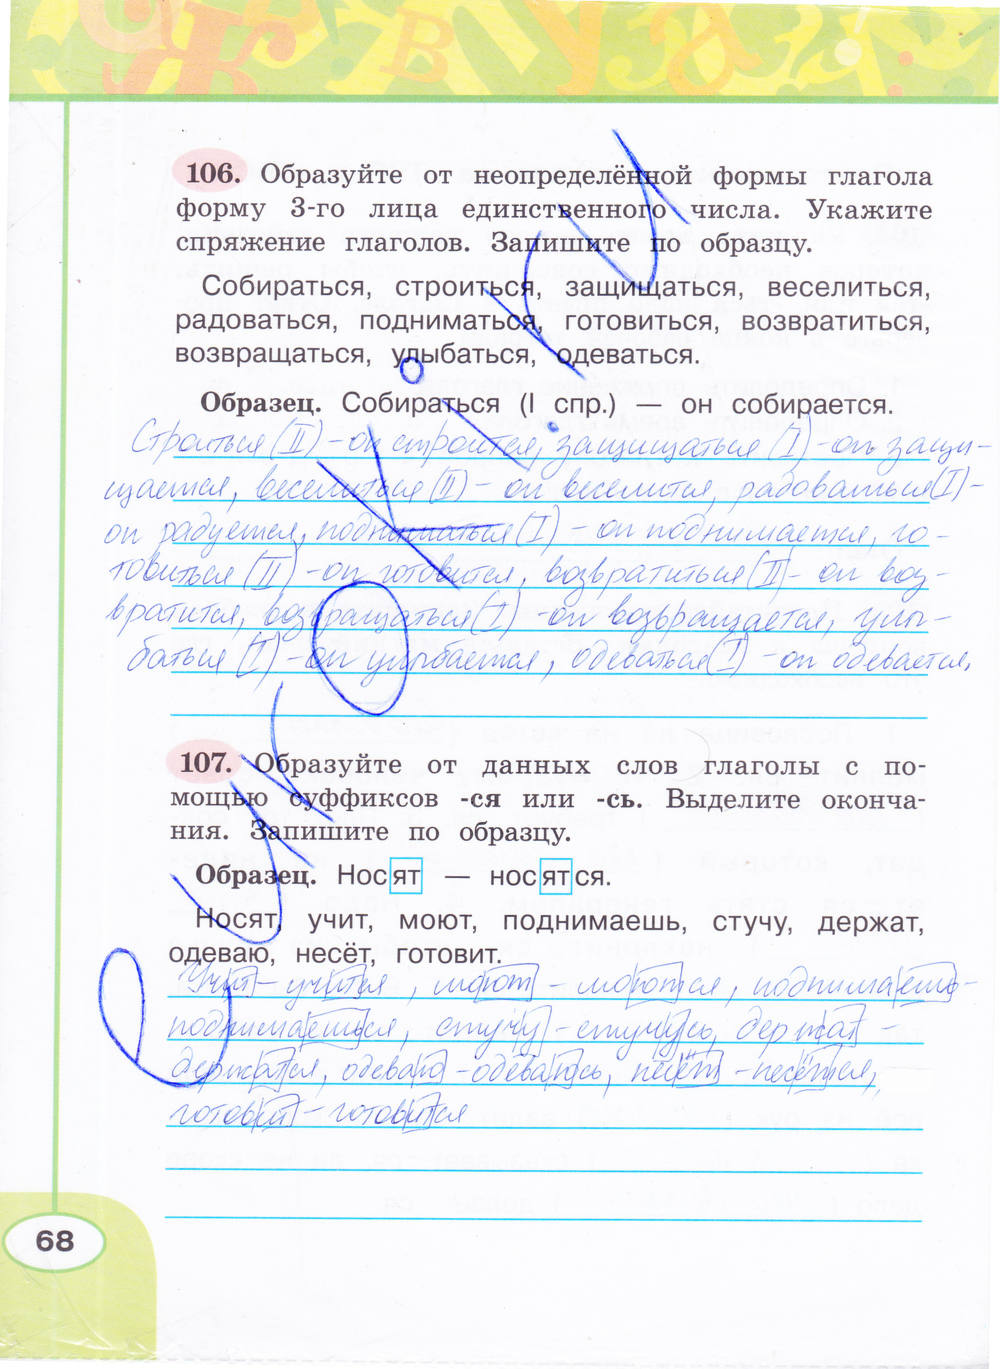 106. Образуйте от неопределённой формы глагола
форму 3-го лица единственного числа. Укажите
спряжение глаголов. Запишите по образцу.
Собираться, строиться, защищаться, веселиться,
радоваться, подниматься, готовиться, возвратиться,
возвращаться, улыбаться, одеваться.
Образец. Собираться (I спр.) — он собирается.
Строиться (II) - он строится, защищаться (I) - он защи-
щается, веселиться (II) - он веселится, радоваться (I) -
он радуется, подниматься (I) - он поднимается, го-
товиться (II) - он готовится, возвратиться (II) - он воз-
вратится, возвращаться (I) - он возвращается, улы-
баться (I) - он улыбается, одеваться (I) - он одевается.
107. Образуйте от данных слов глаголы с по-
мощью суффиксов -ся или -сь. Выделите оконча-
ния. Запишите по образцу.
Образец. Носят — носятся.
Носят, учит, моют, поднимаешь, стучу, держат,
одеваю, несёт, готовит.
Учит - учится, моют - моются, поднимаешь -
поднимаешься, стучу - стучусь, держат -
держатся, одеваю - одеваюсь, несёт - несётся,
готовит - готовится
68
euroki.ru